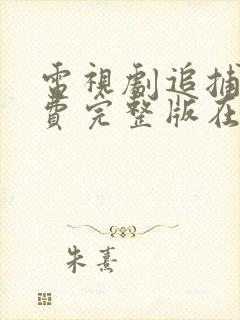 電視劇追捕
費完整版在
朱熹